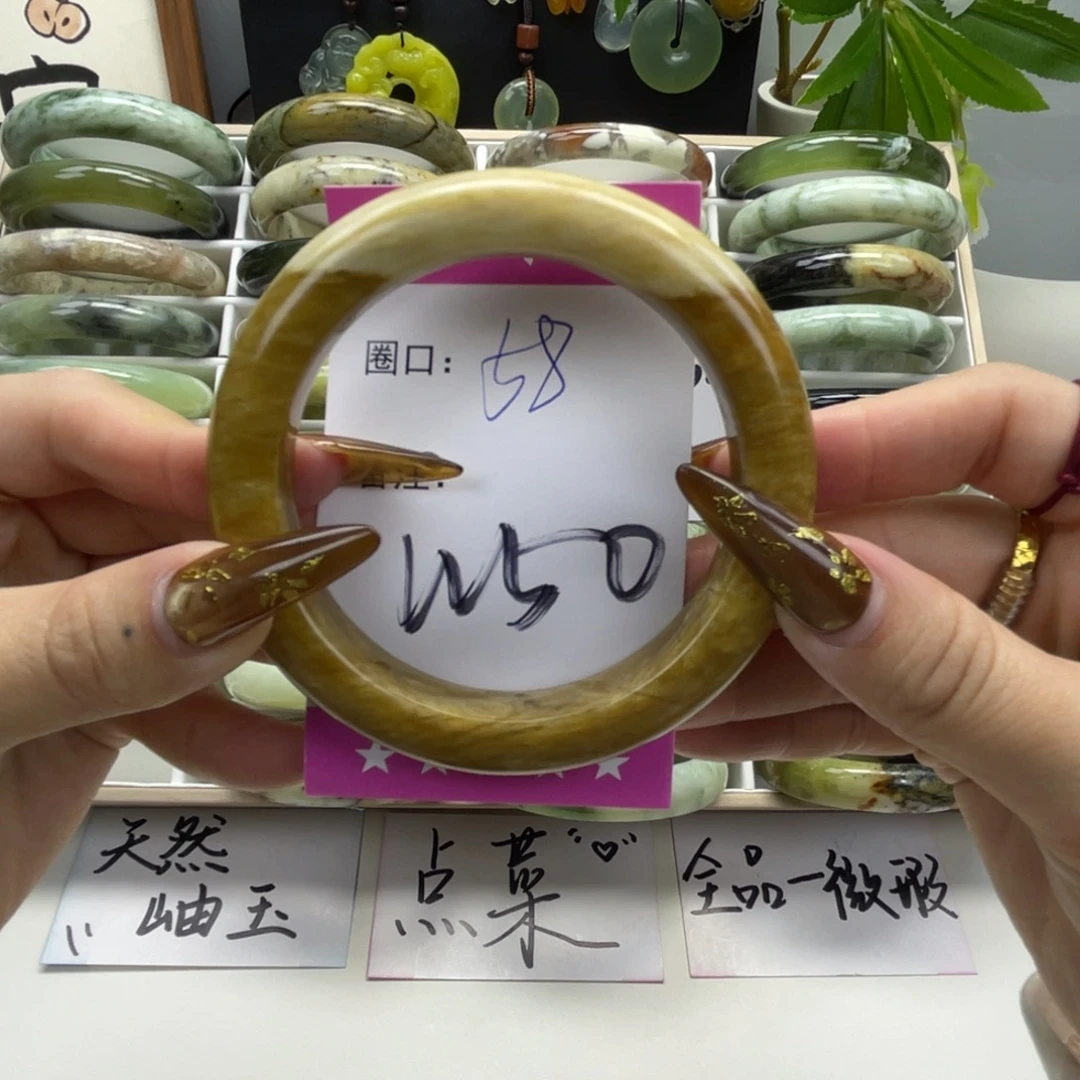 圈口: 58
备注:
W50
天然
岫玉
点菜
全品一微瑕